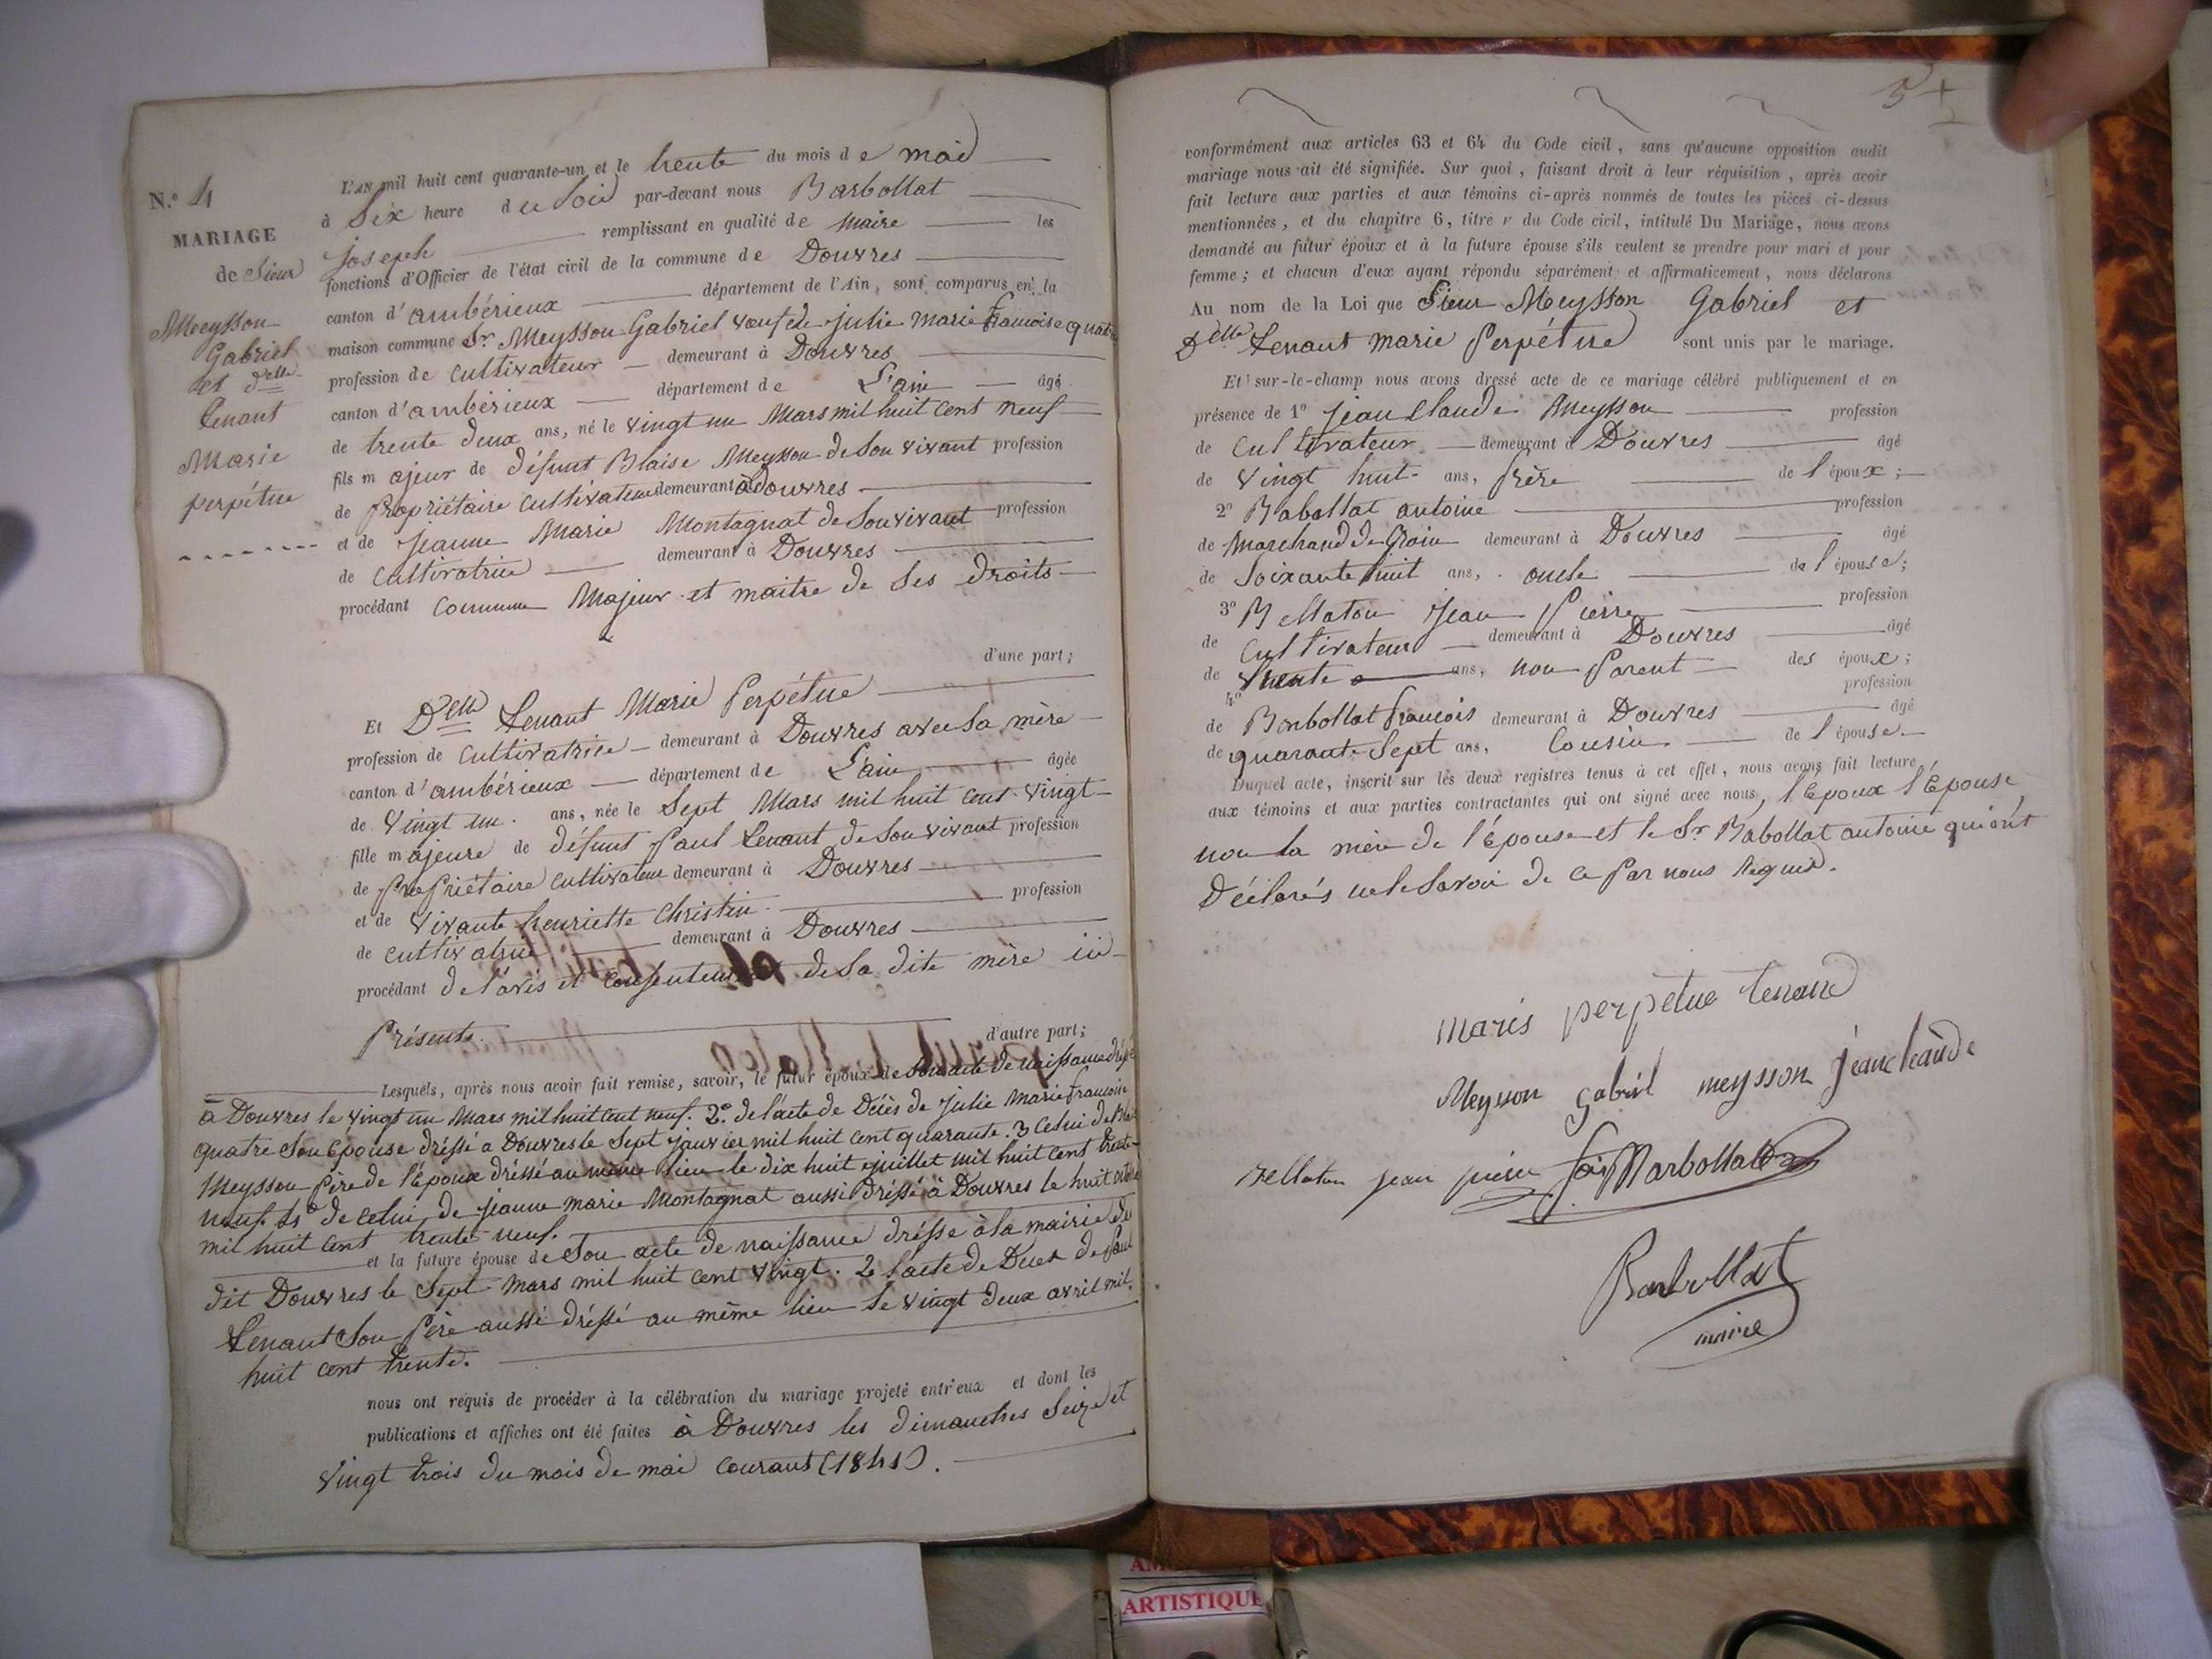 N.° 4
MARIAGE
de Sieur
Meysson
Gabriel
et delle
Tenant
Marie
perpétue
L'AN mil huit cent quarante-un et le trente du mois de mai
à Six heure du Soir par-devant nous Barbollat
joseph remplissant en qualité de maire les
fonctions d'Officier de l'état civil de la commune de Douvres
canton d'ambérieux département de l'Ain, sont comparus en la
maison commune Sr Meysson Gabriel veuf de julie marie francoise quatre
profession de cultivateur demeurant à Douvres
canton d'ambérieux département de L'ain âgé
de trente deux ans, né le vingt un Mars mil huit cent neuf
fils majeur de défunt Blaise Meysson de Son vivant profession
de propriétaire cultivateur demeurant à Douvres
et de jeanne Marie Montagnat de Son vivant profession
de Cultivatrice demeurant à Douvres
procédant comme Majeur et maitre de Ses droits
d'une part;
Et Delle Tenant Marie Perpétue
profession de cultivatrice demeurant à Douvres avec Sa mère
canton d'ambérieux département de L'ain âgée
de vingt un ans, née le Sept Mars mil huit cent vingt
fille majeure de défunt Paul Tenant de Son vivant profession
de propriétaire cultivateur demeurant à Douvres
et de vivante henriette Christin profession
de cultivatrice demeurant à Douvres
procédant de l'avis et consentement de Sa dite mère ici
Présente. d'autre part;
Lesquels, après nous avoir fait remise, savoir, le futur époux de Son acte de naissance
à Douvres le vingt un Mars mil huit cent neuf. 2° de l'acte de Décès de julie Marie francoise
quatre Son Epouse dréssé a Douvres le Sept janvier mil huit cent quarante. 3 Celui de
Meysson père de l'Epoux dréssé au même lieu le dix huit juillet mil huit cent trente
neuf. 4° de celui de jeanne marie Montagnat aussi dréssé à Douvres le huit
mil huit cent trente neuf.
et la future épouse de Son acte de naissance drésse à la mairie du
dit Douvres le Sept mars mil huit cent vingt. 2 l'acte de Décès de Paul
Tenant Son Père aussi dréssé au même lieu le vingt deux avril mil
huit cent trente.
nous ont requis de procéder à la célébration du mariage projeté entr'eux et dont les
publications et affiches ont été faites à Douvres les dimanches Seize et
vingt trois du mois de mai courant (1841).
conformément aux articles 63 et 64 du Code civil, sans qu'aucune opposition audit
mariage nous ait été signifiée. Sur quoi, faisant droit à leur réquisition, après avoir
fait lecture aux parties et aux témoins ci-après nommés de toutes les pièces ci-dessus
mentionnées, et du chapitre 6, titre v du Code civil, intitulé Du Mariage, nous avons
demandé au futur époux et à la future épouse s'ils veulent se prendre pour mari et pour
femme; et chacun d'eux ayant répondu séparément et affirmativement, nous déclarons
Au nom de la Loi que Sieur Meysson Gabriel et
Delle Tenant marie Perpétue sont unis par le mariage.
Et sur-le-champ nous avons dressé acte de ce mariage célébré publiquement et en
présence de 1° jean Claude Meysson profession
de Cultivateur demeurant à Douvres âgé
de vingt huit ans, frère de l'époux;
2° Babollat antoine profession
de Marchand de Grain demeurant à Douvres âgé
de Soixante huit ans, oncle de l'épouse;
3° Bellaton Jean Pierre profession
de Cultivateur demeurant à Douvres âgé
de trente ans, non Parent des époux;
4° profession
de Barbollat francois demeurant à Douvres âgé
de quarante Sept ans, Cousin de l'épouse
Duquel acte, inscrit sur les deux registres tenus à cet effet, nous avons fait lecture
aux témoins et aux parties contractantes qui ont signé avec nous, l'Epoux l'Epouse
non la mère de l'Epouse et le Sr Babollat antoine qui ont
Déclarés ne le Savoir de ce Par nous Requis.
marie perpetue tenand
Meysson gabriel meysson jean cleaude
Bellaton jean pierre fois Barbollat
Barbollat
maire
ARTISTIQUE